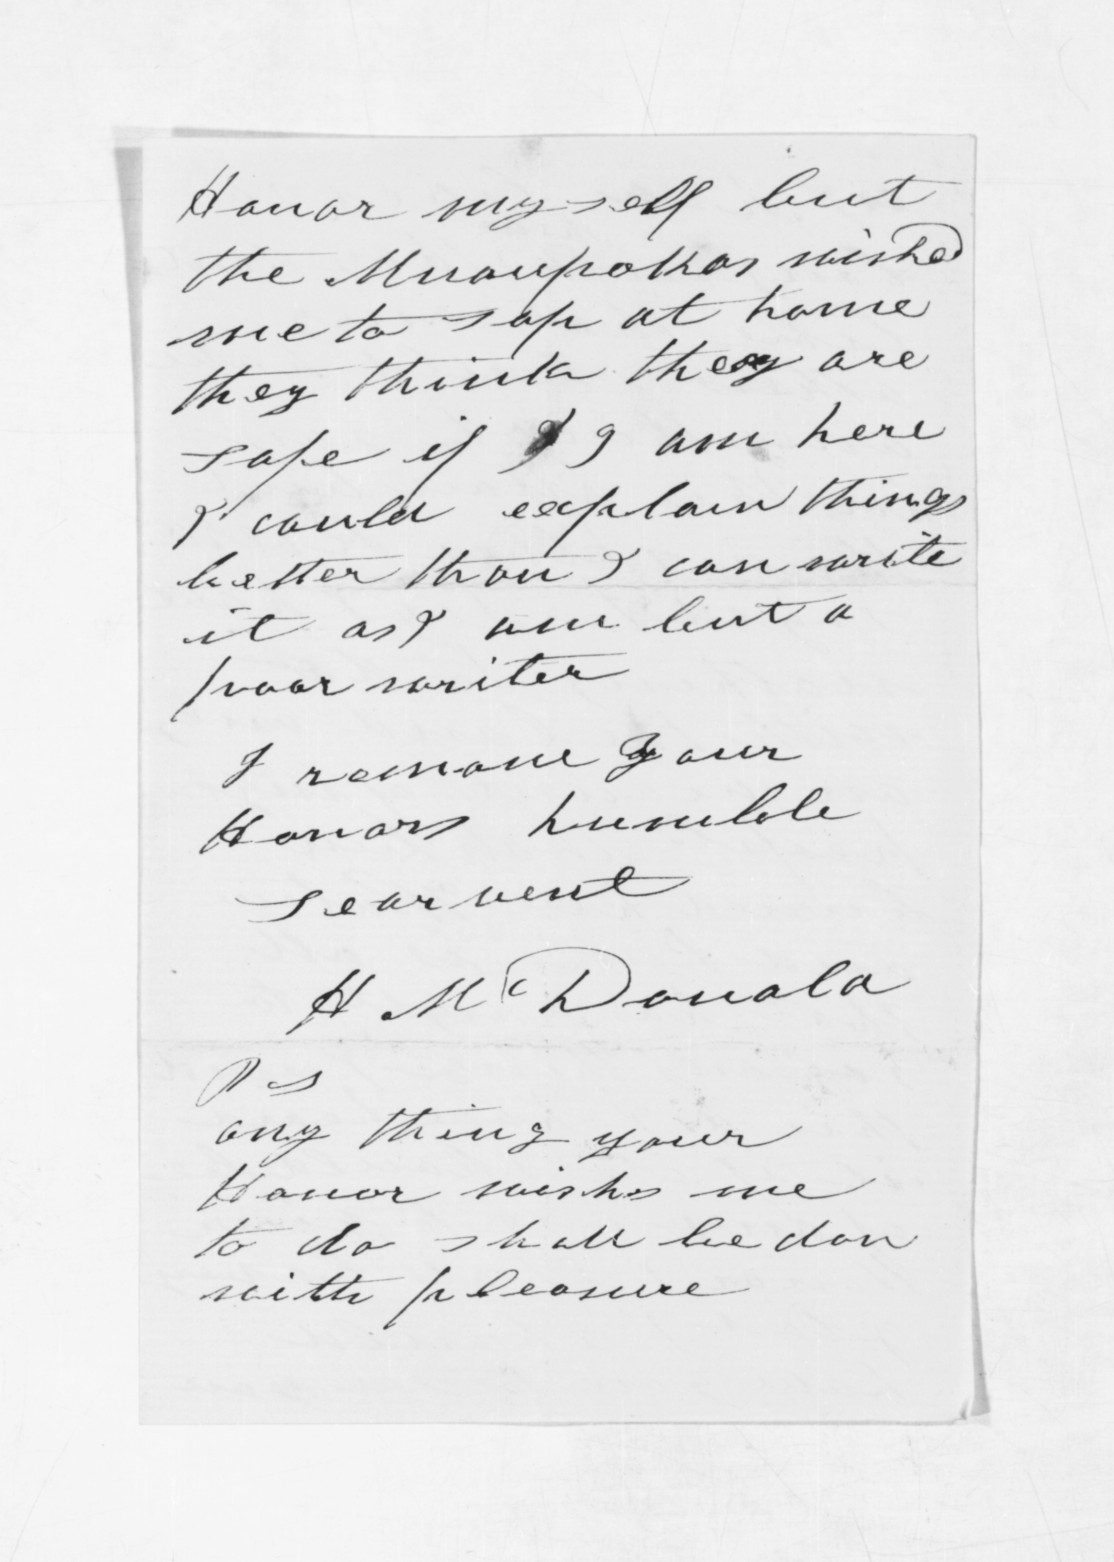 Honor myself but
the Muaupokas wished
me to sop at home
they think they are
safe if I am here
I could explain things
better than I can write
it as I am but a
poor writer
I remane your
Honors humble
searvent
H McDonald
Ps
any thing your
Honor wishs me
to do shall be don
with pleasure